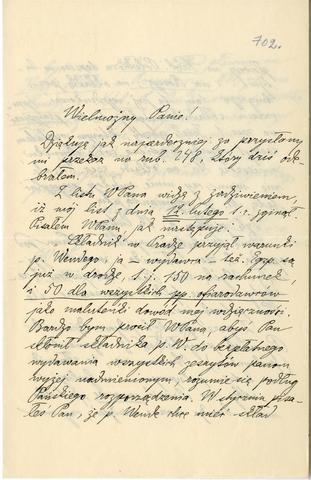 702.
Wielmożny Panie!
Dziękuję jak najserdeczniej za przysłany
mi przekaz na rub. 248, który dziś ode-
brałem.
Z listu WPana widzę z zadziwieniem,
iż mój list z dnia 12. lutego t. r. zginął.
Pisałem WPanu, jak następuje:
Składnik w Pradze przyjął warunki
p. Wendego, ja – wydawca – też. Egz. są
już w drodze, t. j. 150 na rachunek
i 50 dla wszystkich pp. ofiarodawców
jako malutenki dowód mej wdzięczności.
Bardzo bym prosił WPana, abyś Pan
skłonił składnika p. W. do bezpłatnego
wydawania wszystkich zeszytów panom
wyżej nadmienionym, rozumie się podług
Pańskiego rozporządzenia. W styczniu pisa-
łeś Pan, że p. Wende chce mieć skład